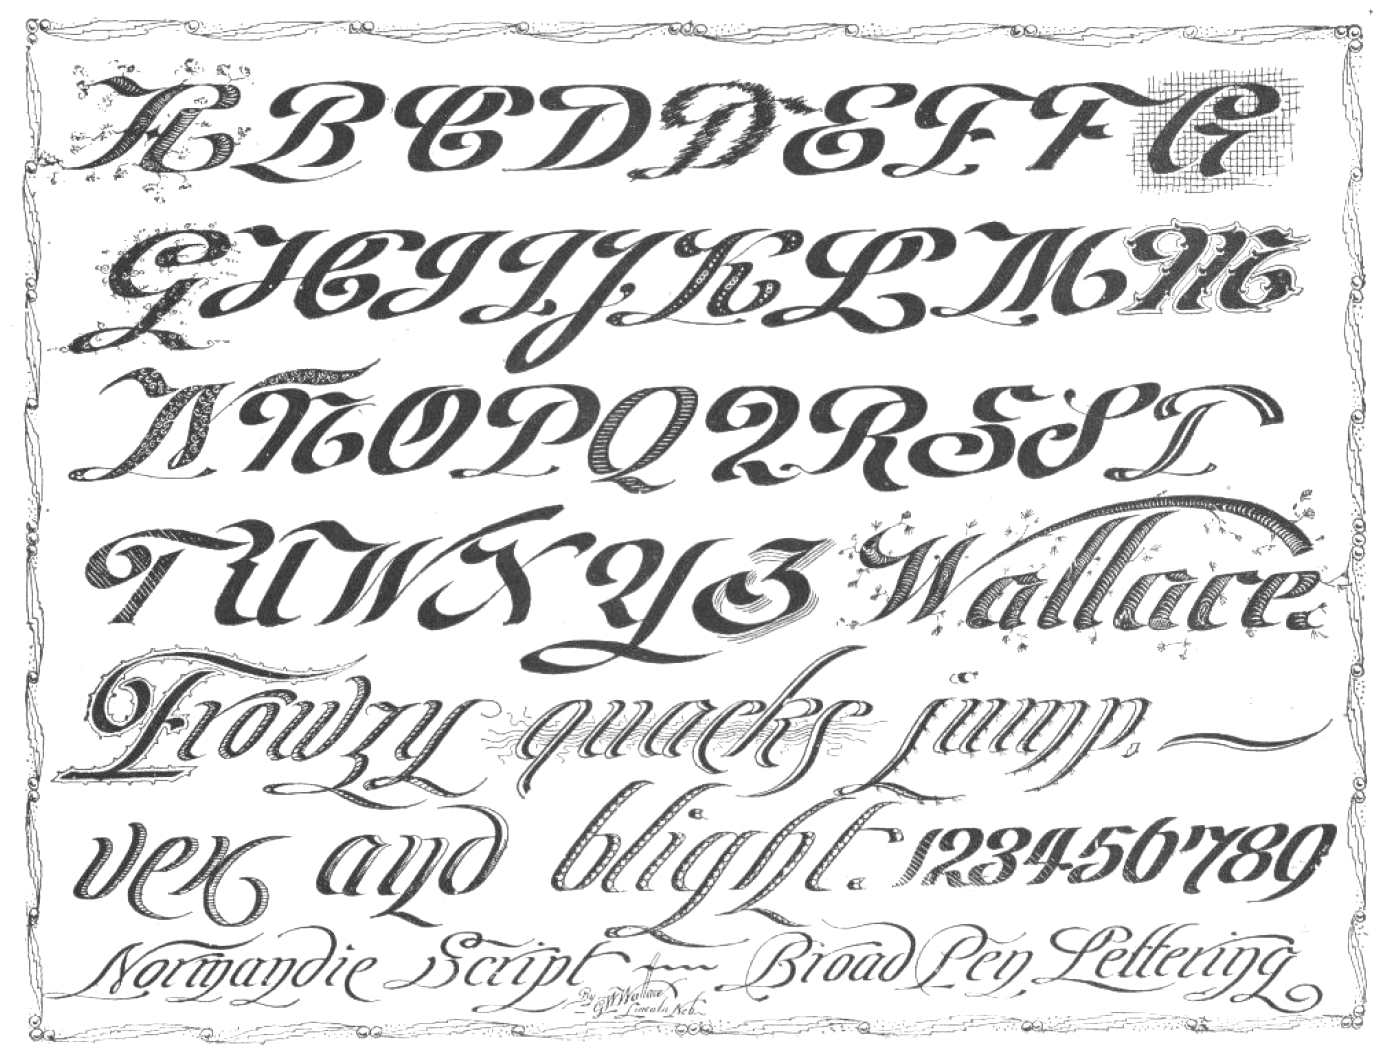 A B C D D E F F G
G H I I J K L M M
N N O P Q Q R S S T
T U W X Y Z Wallace
Frowzy quacks jump,
vex and blight. 123456789
Normandie Script — Broad Pen Lettering
By G W Wallace
Lincoln Neb.